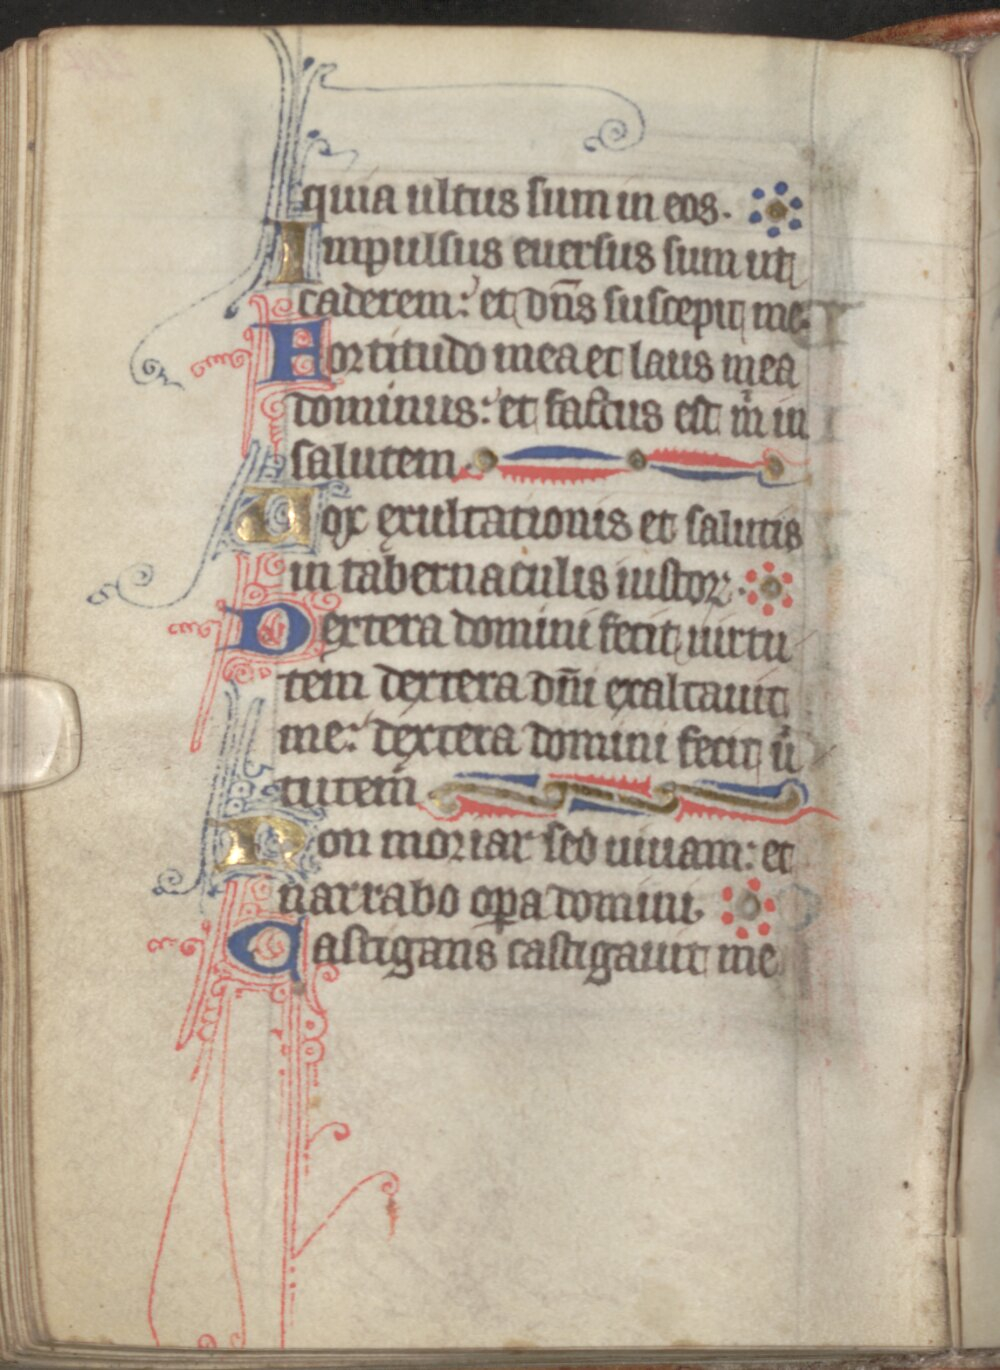 quia ultus sum in eos.
Impulsus euersus sum ut
caderem: et dñs suscepit me.
Fortitudo mea et laus mea
dominus: et factus est m̃ in
salutem.
Uox exultationis et salutis
in tabernaculis iustoꝝ.
Dextera domini fecit uirtu
tem dextera dñi exaltauit
me: dextera domini fecit ũ
tutem
Non moriar sed uiuam: et
narrabo oꝑa domini.
Castigans castigauit me